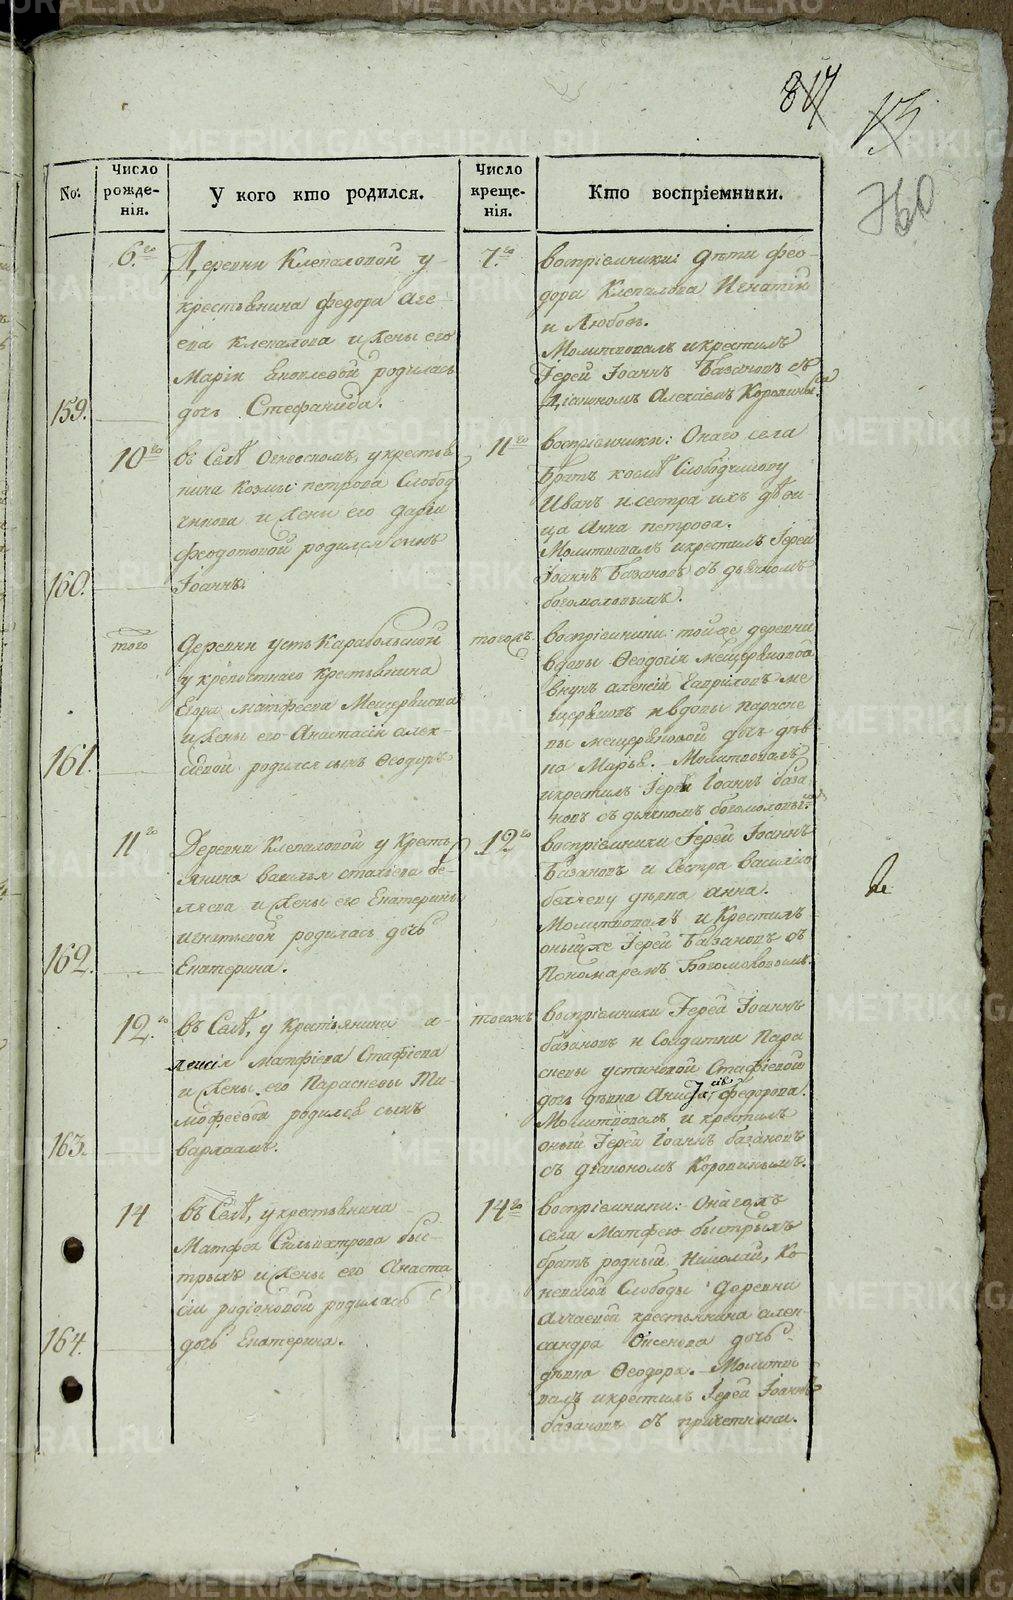 817
13
760
No:
Число рожденія.
У кого кто родился.
Число крещенія.
Кто воспріемники.
159.
6.го
Деревни Клепаловой у
крестьянина Федора Аге-
ева Клепалова и жены его
Маріи Яковлевой родилась
дочь Стефанида.
7.го
воспріемники: дѣти Фео-
дора Клепалова Игнатій
и Любовь.
Молитвовалъ и крестилъ
Іерей Іоаннъ Базановъ съ
Діакономъ Алексіемъ Коровины
160.
10го
въ Селѣ Огневскомъ, у крестья
нина Козмы петрова Слобод
чикова и жены его даріи
Феодотовой родился сынъ
Іоаннъ.
11го
воспріемники: Онаго села
братъ козмѣ Слободчикову
Иванъ и сестра ихъ дѣви-
ца Анна петрова.
Молитвовалъ и крестилъ Іерей
Іоаннъ Базановъ съ дьячкомъ
богомоловымъ.
161.
того
Деревни усть Карабольской
у крепостнаго крестьянина
Егора матфеева Мещерякова
и жены его Анастасіи алек-
сѣевой родился сынъ Феодоръ
тогожъ
воспріемники: той же деревни
вдовы Феодосіи мещеряковой
внукъ алексій Гавриловъ ме
щеряковъ и вдовы параске
вы мещеряковой дочь дѣв-
ка Марья. Молитвовалъ
и крестилъ Іерей Іоаннъ база
новъ съ дьячкомъ богомоловы
162.
11го
Деревни Клепаловой у Кресть
янина василья стахіева бе-
ляева и жены его Екатерины
игнатьевой родилась дочь
Екатерина.
12го
воспріемники Іерей Іоаннъ
Базановъ и Сестра василію
беляеву дѣвка анна.
Молитвовалъ и Крестилъ
оный же Іерей Базановъ съ
Пономаремъ Богомоловымъ.
163.
12го
въ Селѣ, у крестьянина а-
лексія матфіева Стафіева
и жены его Параскевы Ти-
мофеевой родился сынъ
варлаамъ.
тогожъ
воспріемники Іерей Іоаннъ
базановъ и Солдатки Пара
скевы устиновой Стафіевой
дочь дѣвка Федорова.
Молитвовалъ и крестилъ
оный Іерей Іоаннъ базановъ
съ діакономъ Коровинымъ.
164.
14
въ Селѣ, у крестьянина
Матфея Сильвестрова быс-
трыхъ и жены его Анаста
сіи родіоновой родилась
дочь Екатерина.
14го
воспріемники: Онагожъ
села Матфею быстрыхъ
братъ родный Николай, Ко
невской Слободы деревни
крестьянина алек-
сандра дочь
дѣвка Феодора. Молитво
валъ и крестилъ Іерей Іоаннъ
базановъ съ причетники.